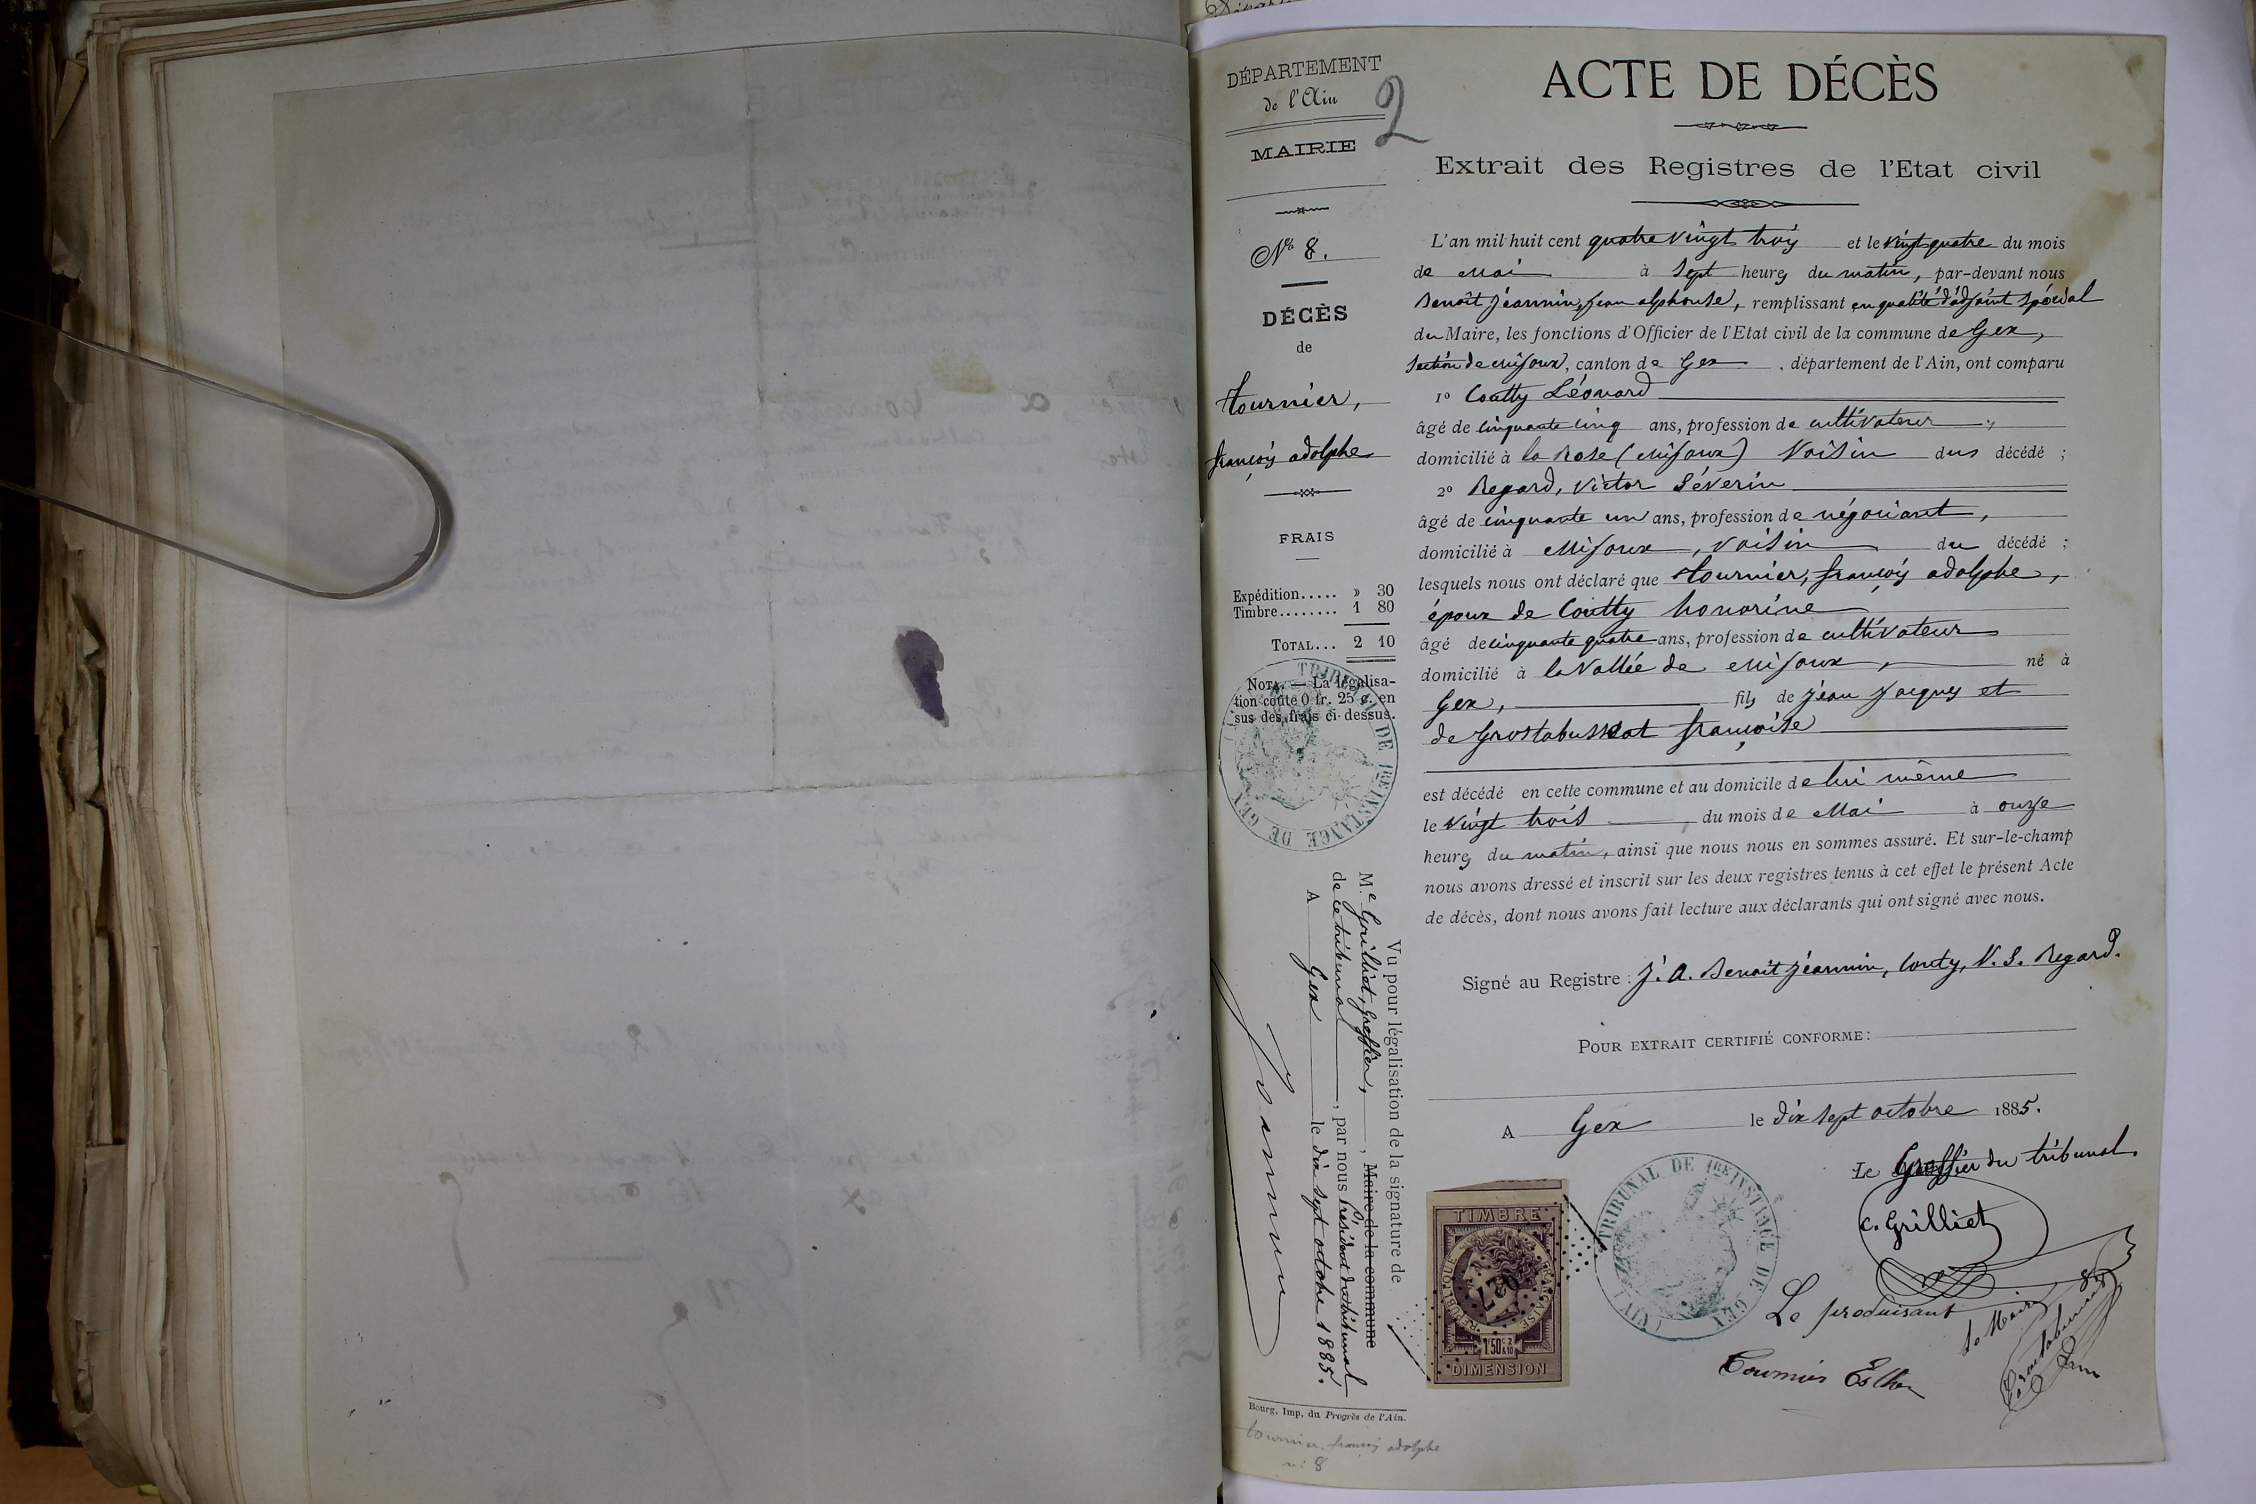 DÉPARTEMENT
de l'Ain
2
MAIRIE
N° 8.
DÉCÈS
de
Tournier,
françois adolphe
FRAIS
Expédition..... » 30
Timbre........ 1 80
TOTAL... 2 10
NOTA. — La légalisa-
tion coûte 0 fr. 25 c. en
sus des frais ci-dessus.
TRIBUNAL DE 1RE INSTANCE DE GEX
Vu pour légalisation de la signature de
M.e Grilliet, greffier, , Maire de la commune
de ce tribunal , par nous Président du tribunal
A Gex le dix sept octobre 1885.
Bourg, Imp. du Progrès de l'Ain.
tournier, françois adolphe
n: 8
ACTE DE DÉCÈS
Extrait des Registres de l'Etat civil
L'an mil huit cent quatre vingt trois et le vingt quatre du mois
de Mai à Sept heures du matin, par-devant nous
Benoît Jeannin, jean alphonse, remplissant en qualité d'adjoint spécial
du Maire, les fonctions d'Officier de l'Etat civil de la commune de Gex,
Section de Mijoux, canton de Gex , département de l'Ain, ont comparu
1° Coutty Léonard
âgé de cinquante cinq ans, profession de cultivateur ,
domicilié à la Rose (Mijoux) Voisin du décédé ;
2° Regard, Victor Séverin
âgé de cinquante un ans, profession de négociant,
domicilié à Mijoux, voisin du décédé ;
lesquels nous ont déclaré que Tournier, françois adolphe,
époux de Coutty honorine
âgé de cinquante quatre ans, profession de cultivateur
domicilié à la Vallée de Mijoux, né à
Gex, fils de Jean Jacques et
de Grostabussiat françoise
est décédé en cette commune et au domicile de lui même
le vingt trois , du mois de Mai à onze
heures du matin, ainsi que nous nous en sommes assuré. Et sur-le-champ
nous avons dressé et inscrit sur les deux registres tenus à cet effet le présent Acte
de décès, dont nous avons fait lecture aux déclarants qui ont signé avec nous.
Signé au Registre : J. A. Benoit Jeannin, Couty, V. S. Regard.
POUR EXTRAIT CERTIFIÉ CONFORME :
A Gex le dix sept octobre 1885.
Le Greffier du tribunal.
C. Grilliet
TRIBUNAL DE 1RE INSTANCE DE GEX
TIMBRE
RÉPUBLIQUE FRANÇAISE
1f50c
DIMENSION
Le produisant
Tournier Esther
Le Maire